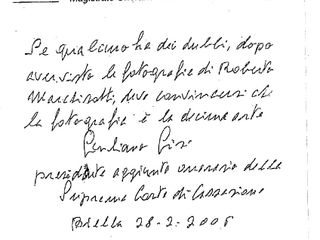 Se qualcuno ha dei dubbi, dopo
aver visto le fotografie di Roberto
Marchisotti, deve convincersi che
la fotografia è la decima arte
Giuliano
presidente aggiunto onorario della
Suprema Corte di Cassazione
Biella 28-2-2008